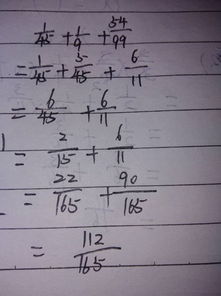 1/45 + 1/9 + 54/99
= 1/45 + 5/45 + 6/11
= 6/45 + 6/11
= 2/15 + 6/11
= 22/165 + 90/165
= 112/165